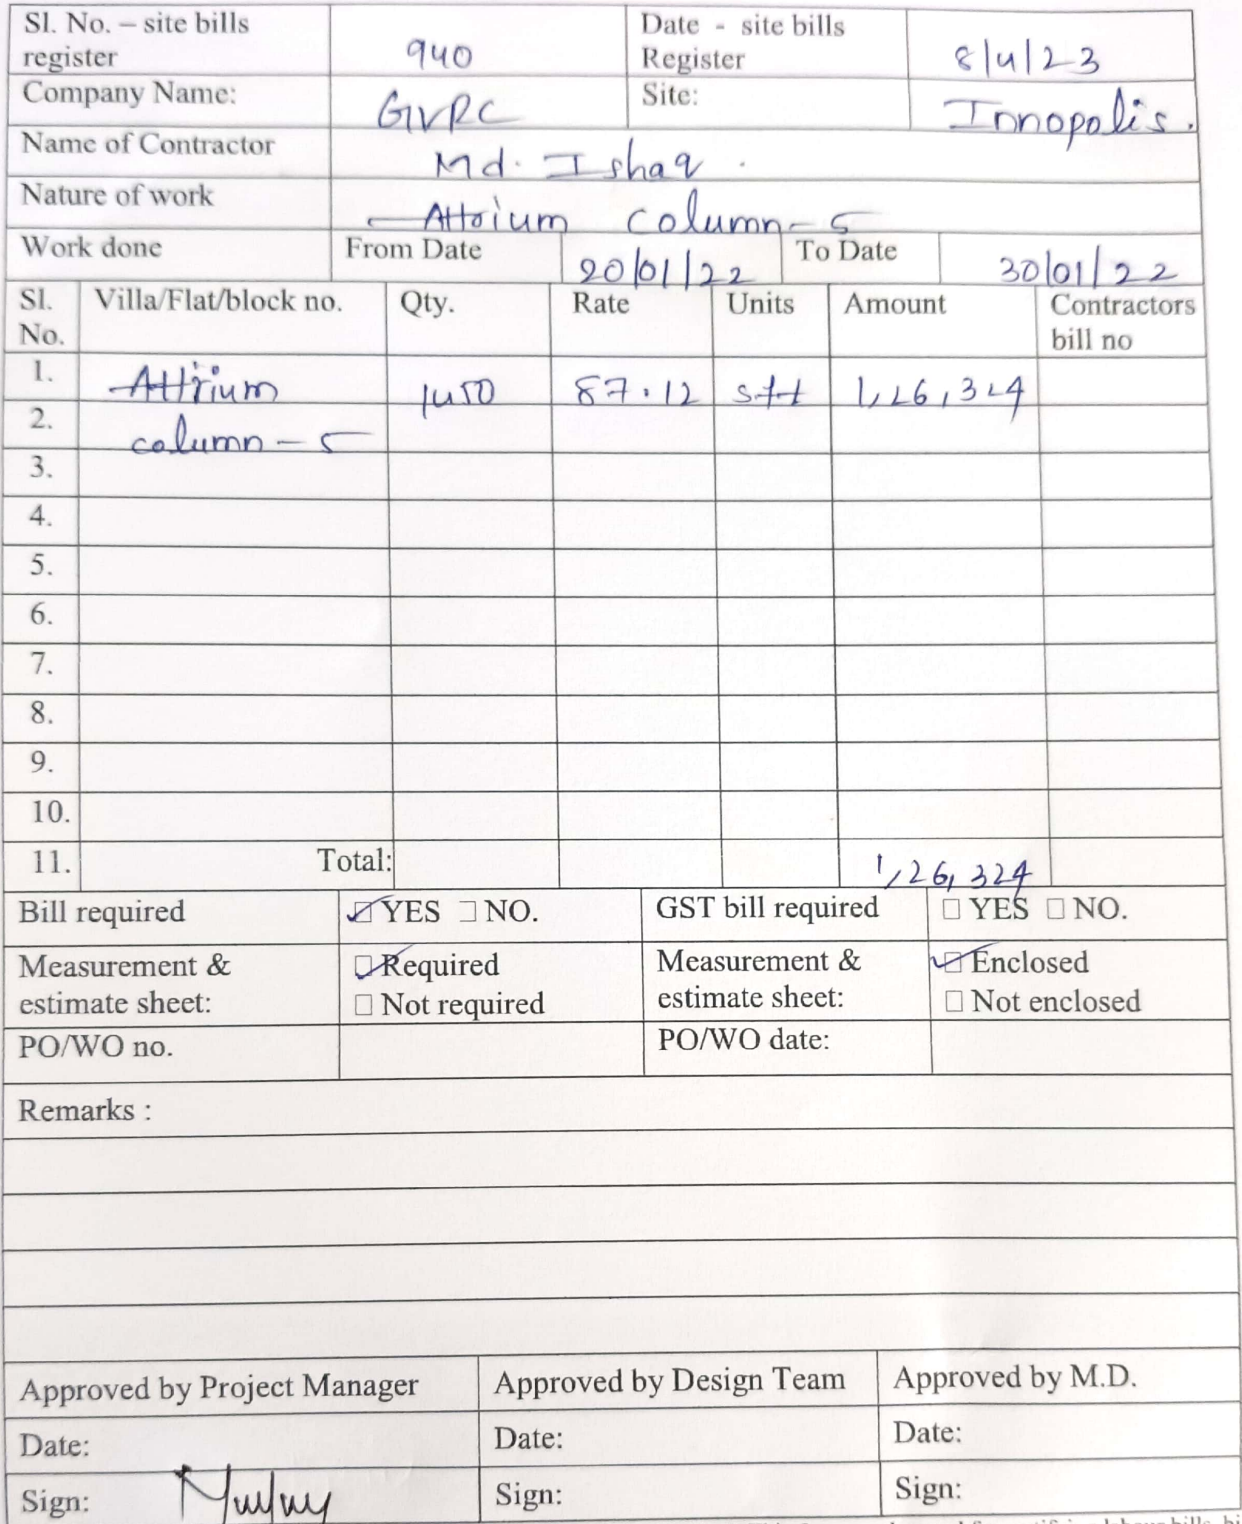 Sl. No. – site bills register 940 Date - site bills Register 8/4/23
Company Name: GVRC Site: Innopolis.
Name of Contractor Md. Ishaq.
Nature of work Attrium column-5
Work done From Date 20/01/22 To Date 30/01/22
Sl. No. Villa/Flat/block no. Qty. Rate Units Amount Contractors bill no
1. Attrium 1450 87.12 sft 1,26,324
2. column-5
3.
4.
5.
6.
7.
8.
9.
10.
11. Total: 1,26,324
Bill required ☑ YES □ NO. GST bill required □ YES □ NO.
Measurement & estimate sheet: ☑ Required □ Not required Measurement & estimate sheet: ☑ Enclosed □ Not enclosed
PO/WO no. PO/WO date:
Remarks :
Approved by Project Manager Approved by Design Team Approved by M.D.
Date: Date: Date:
Sign: Sign: Sign: